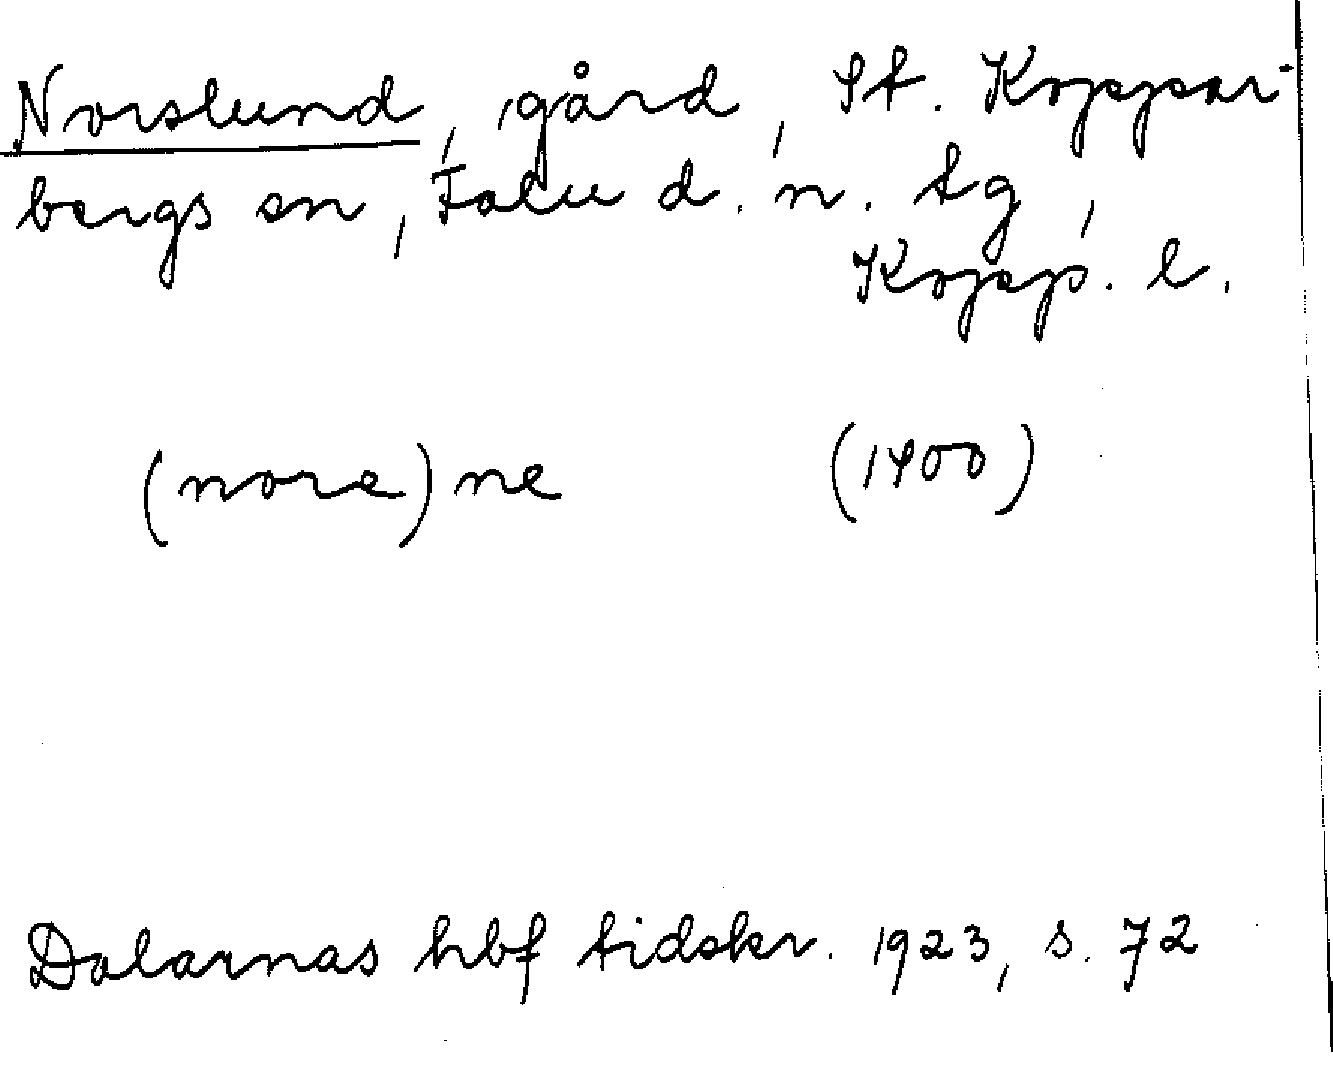 Norslund, gård, St. Koppar-
bergs sn, Falu d. n. tg,
Kopp. l.
(nore) ne (1400)
Dalarnas hbf tidskr. 1923, s. 72